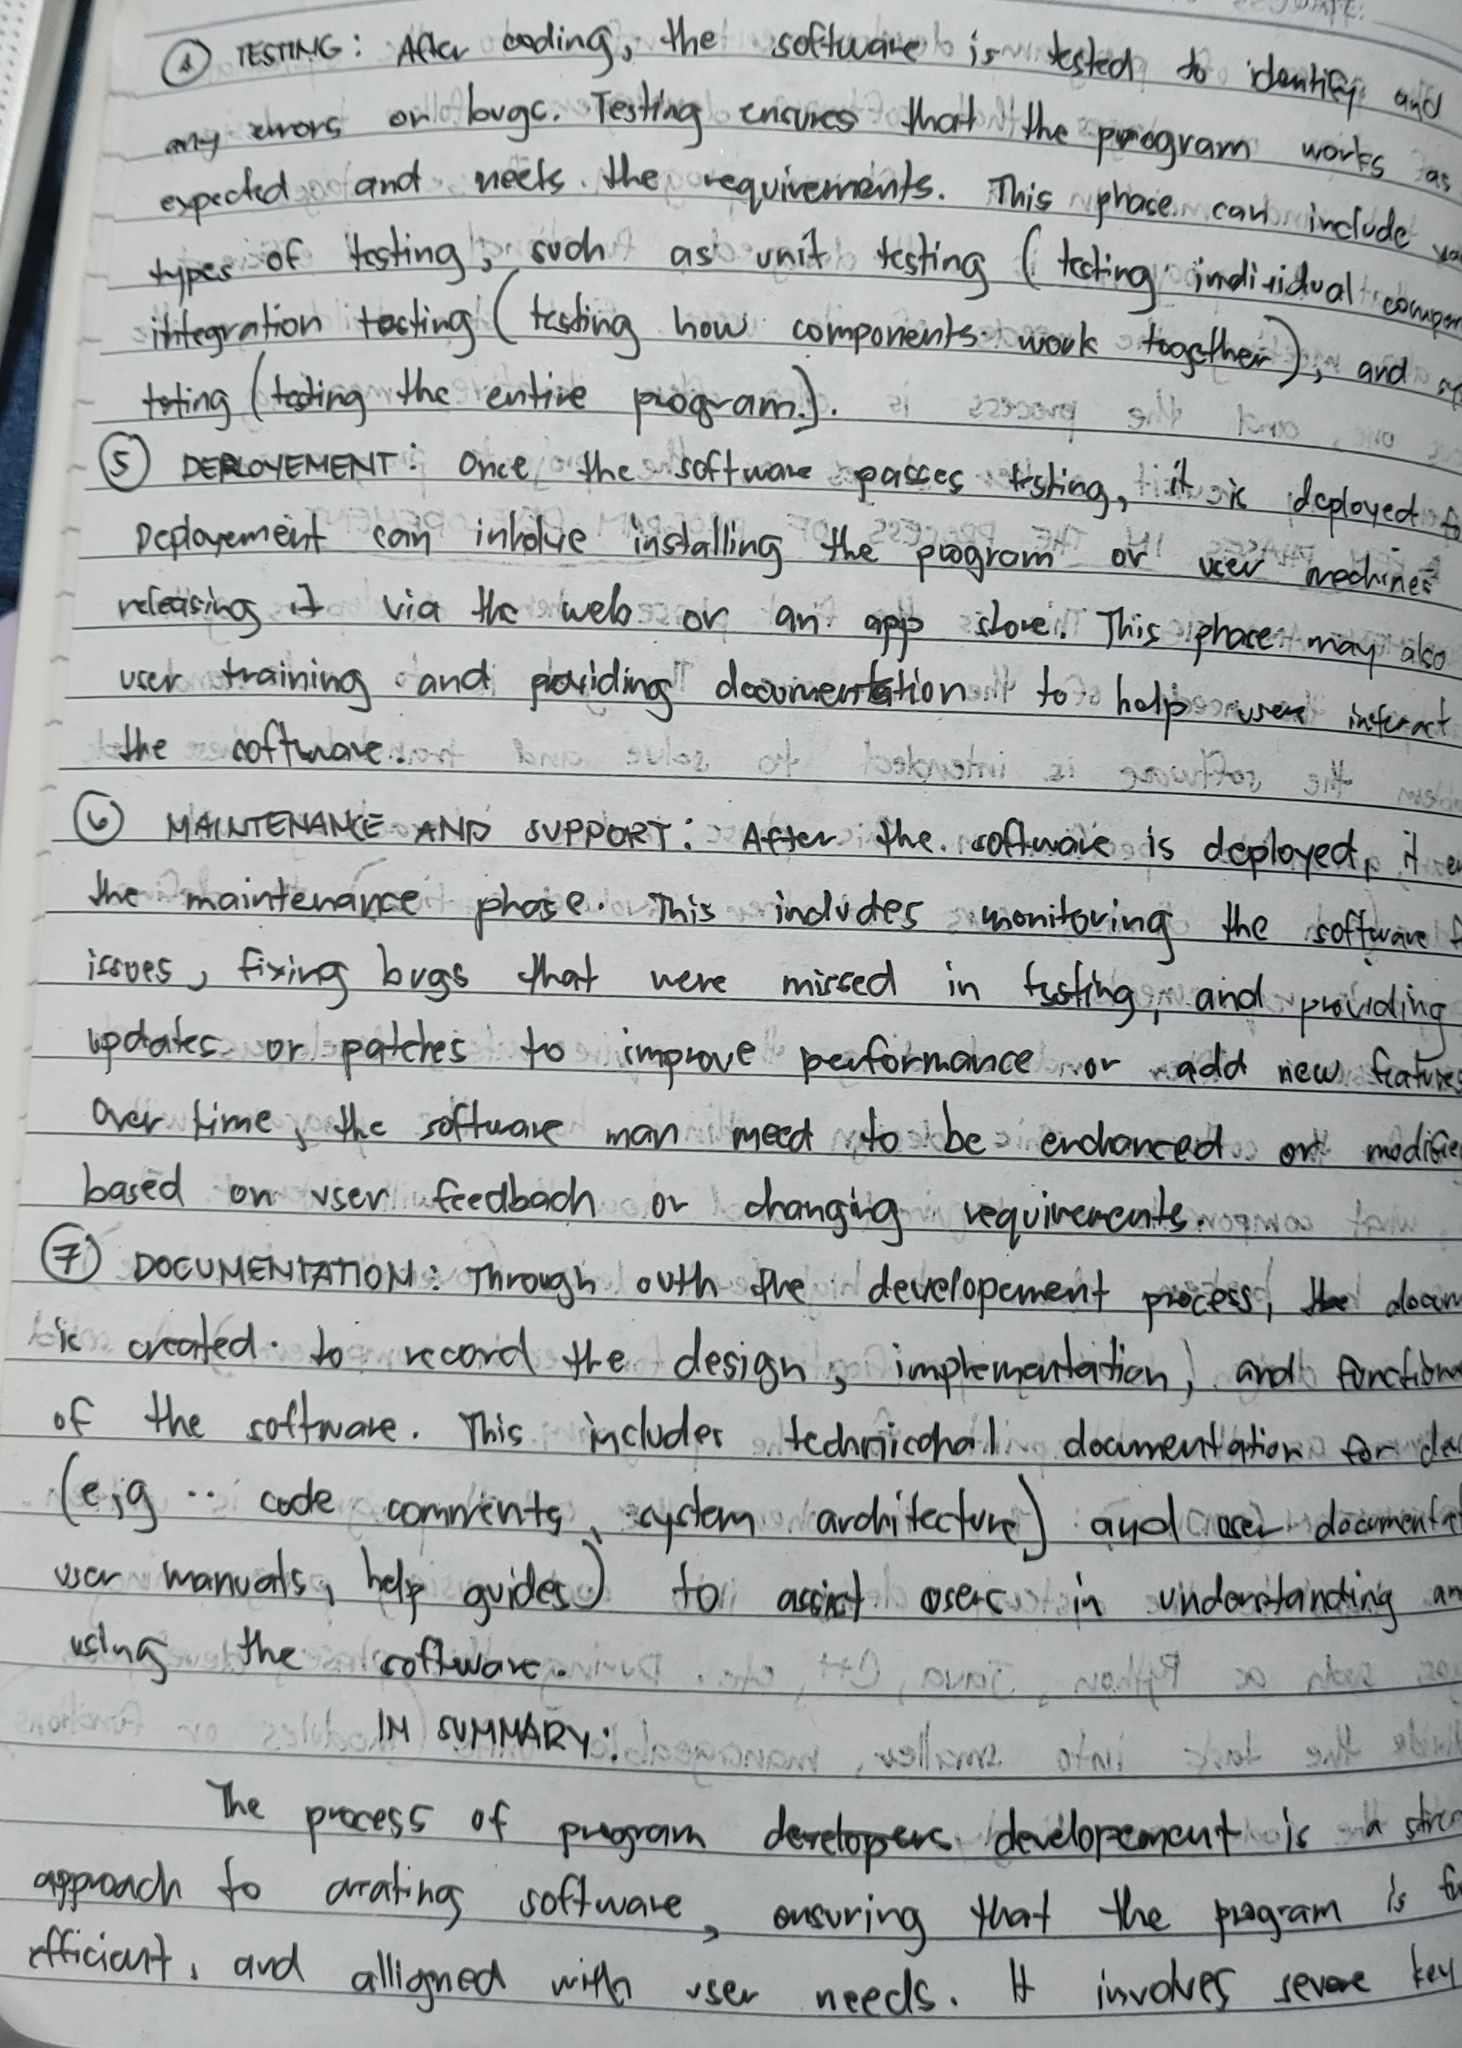 ④ TESTING: After coding, the software is tested to identify and
any errors or bugs. Testing ensures that the program works as
expected and meets the requirements. This phase can include
types of testing, such as unit testing (testing individual
integration testing (testing how components work together), and
testing (testing the entire program).
⑤ DEPLOYEMENT: Once the software passes testing, it is deployed
Deployement can inholve installing the program or user machines
releasing it via the web or an app store. This phase may also
user training and providing documentation to help users interact
the software.
⑥ MAINTENANCE AND SUPPORT: After the software is deployed, it
the maintenance phase. This includes monitoring the software
issues, fixing bugs that were missed in testing, and providing
updates or patches to improve performance or add new features
Over time, the software man need to be enhanced or
based on user feedbach or changing requirements.
⑦ DOCUMENTATION: Through outh the developement process, the
is created to record the design, implementation, and
of the software. This includes technicohal documentation for
(e,g .. code comments, system architecture) and user
user manuals, help guides) to assist users in understanding
using the software.
IN SUMMARY:
The process of program developers developement is a
approach to creating software, ensuring that the program is
efficient, and alligned with user needs. It involves severe key